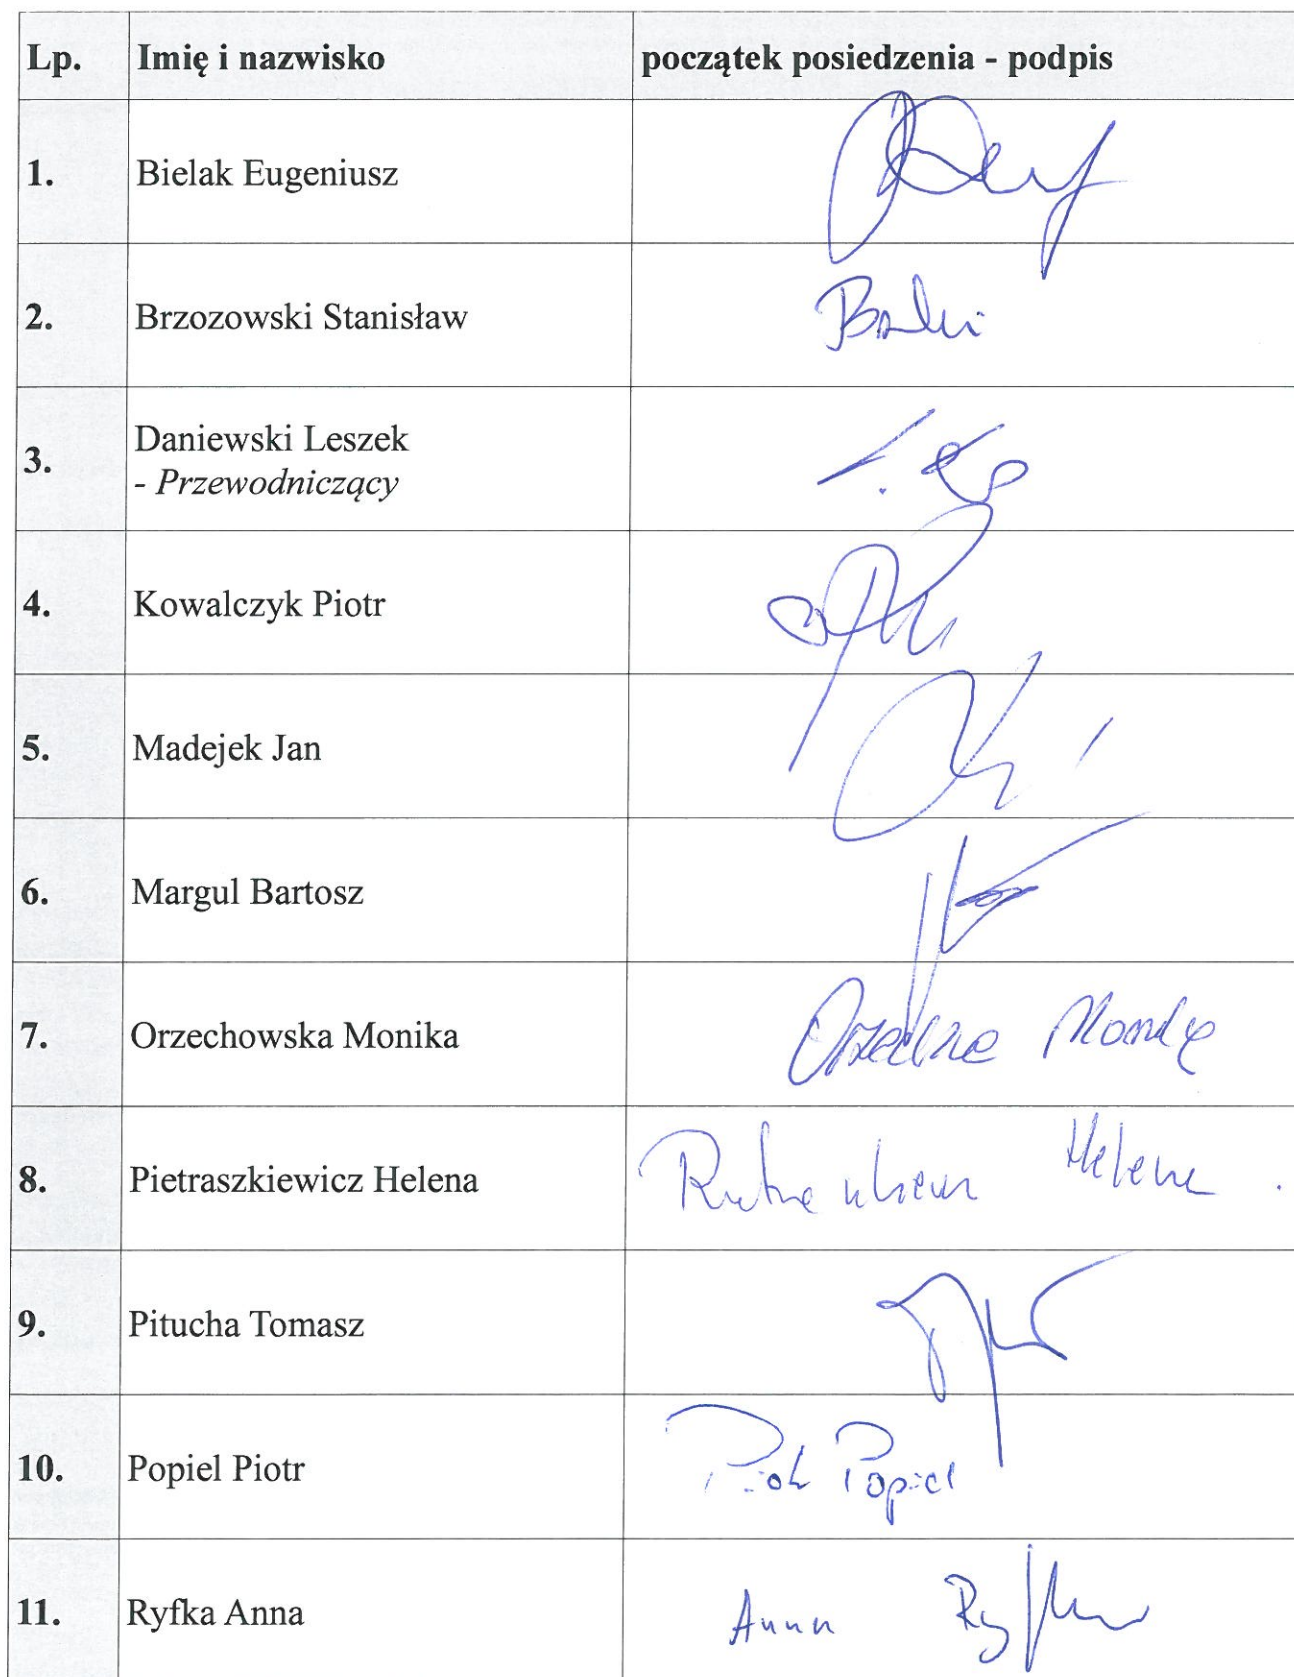 Lp. Imię i nazwisko początek posiedzenia - podpis
1. Bielak Eugeniusz
2. Brzozowski Stanisław
3. Daniewski Leszek
- Przewodniczący
4. Kowalczyk Piotr
5. Madejek Jan
6. Margul Bartosz
7. Orzechowska Monika
8. Pietraszkiewicz Helena Helena
9. Pitucha Tomasz
10. Popiel Piotr Piotr Popiel
11. Ryfka Anna Anna Ryfka